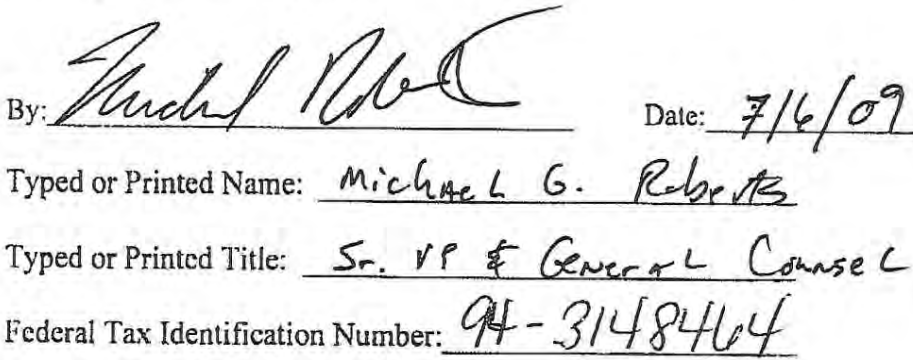 By: Michael Roberts Date: 7/6/09
Typed or Printed Name: Michael G. Roberts
Typed or Printed Title: Sr. VP & General Counsel
Federal Tax Identification Number: 94-3148464